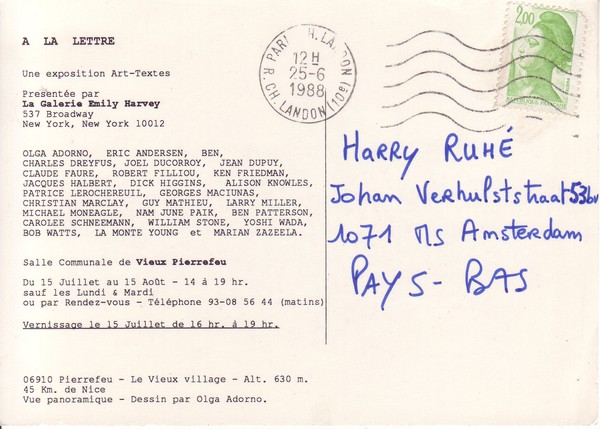 A LA LETTRE
Une exposition Art-Textes
Presentée par
La Galerie Emily Harvey
537 Broadway
New York, New York 10012
OLGA ADORNO, ERIC ANDERSEN, BEN,
CHARLES DREYFUS, JOEL DUCORROY, JEAN DUPUY,
CLAUDE FAURE, ROBERT FILLIOU, KEN FRIEDMAN,
JACQUES HALBERT, DICK HIGGINS, ALISON KNOWLES,
PATRICE LEROCHEREUIL, GEORGES MACIUNAS,
CHRISTIAN MARCLAY, GUY MATHIEU, LARRY MILLER,
MICHAEL MONEAGLE, NAM JUNE PAIK, BEN PATTERSON,
CAROLEE SCHNEEMANN, WILLIAM STONE, YOSHI WADA,
BOB WATTS, LA MONTE YOUNG et MARIAN ZAZEELA.
Salle Communale de Vieux Pierrefeu
Du 15 Juillet au 15 Août - 14 à 19 hr.
sauf les Lundi & Mardi
ou par Rendez-vous - Téléphone 93-08 56 44 (matins)
Vernissage le 15 Juillet de 16 hr. à 19 hr.
06910 Pierrefeu - Le Vieux village - Alt. 630 m.
45 Km. de Nice
Vue panoramique - Dessin par Olga Adorno.
12 H
25-6
1988
R. CH. LANDON (10e)
2,00
HARRY RUHÉ
Johan Verhulststraat 53bv
1071 MS Amsterdam
PAYS-BAS